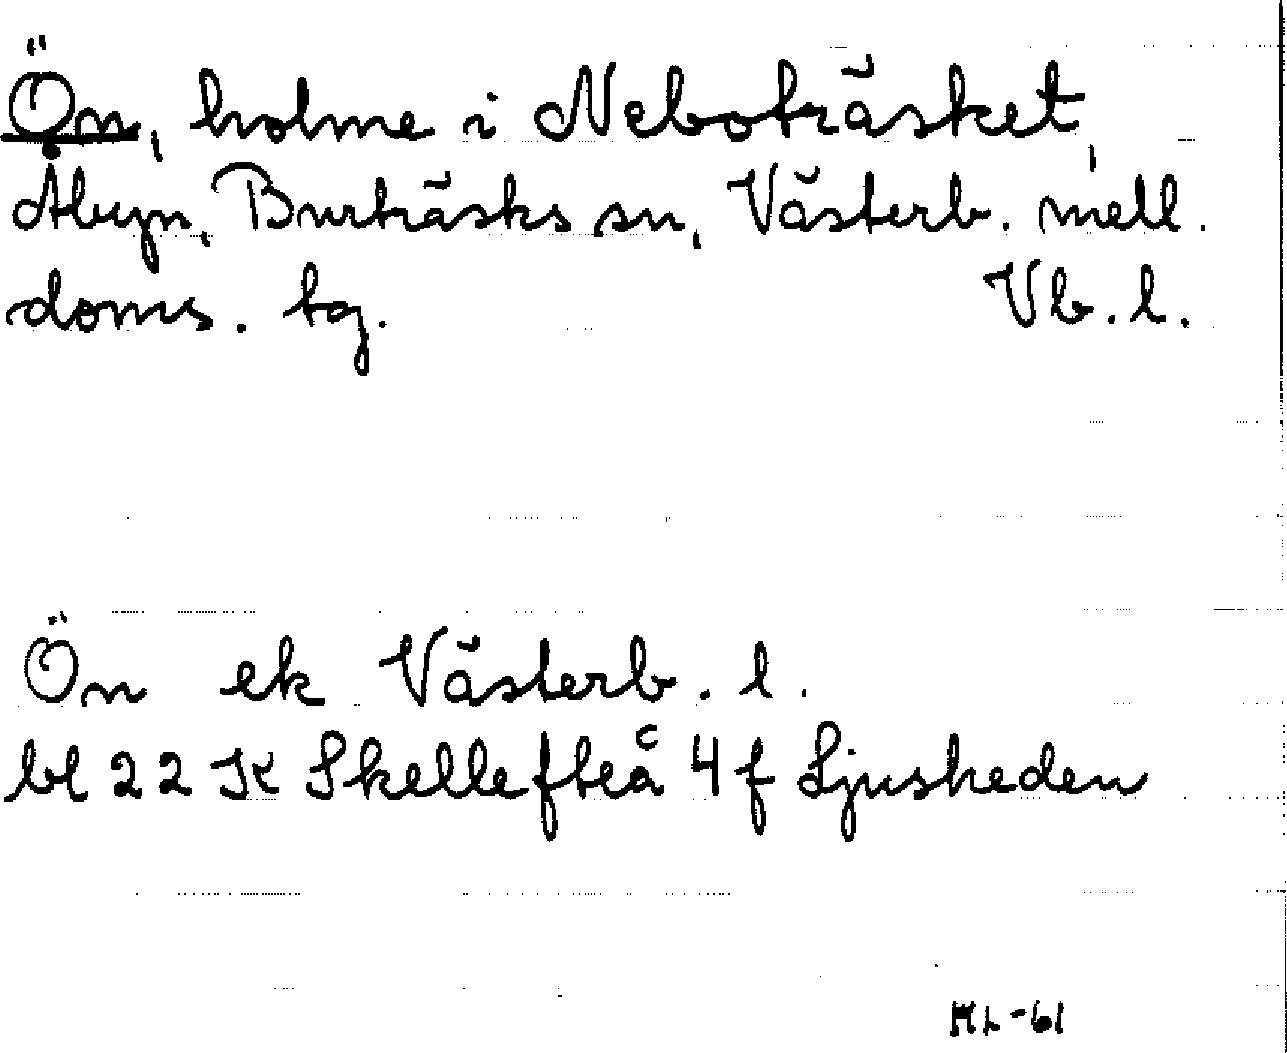 Ön, holme i Neboträsket,
Åbyn, Burträsks sn, Västerb. mell.
doms. tg. Vb. l.
Ön ek Västerb. l.
bl 22 K Skellefteå 4 f Ljusheden
ML-61